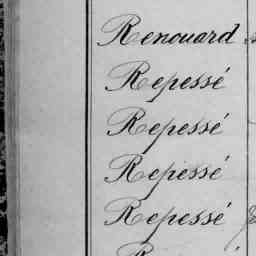 Renouard
Repessé
Repessé
Repessé
Repessé